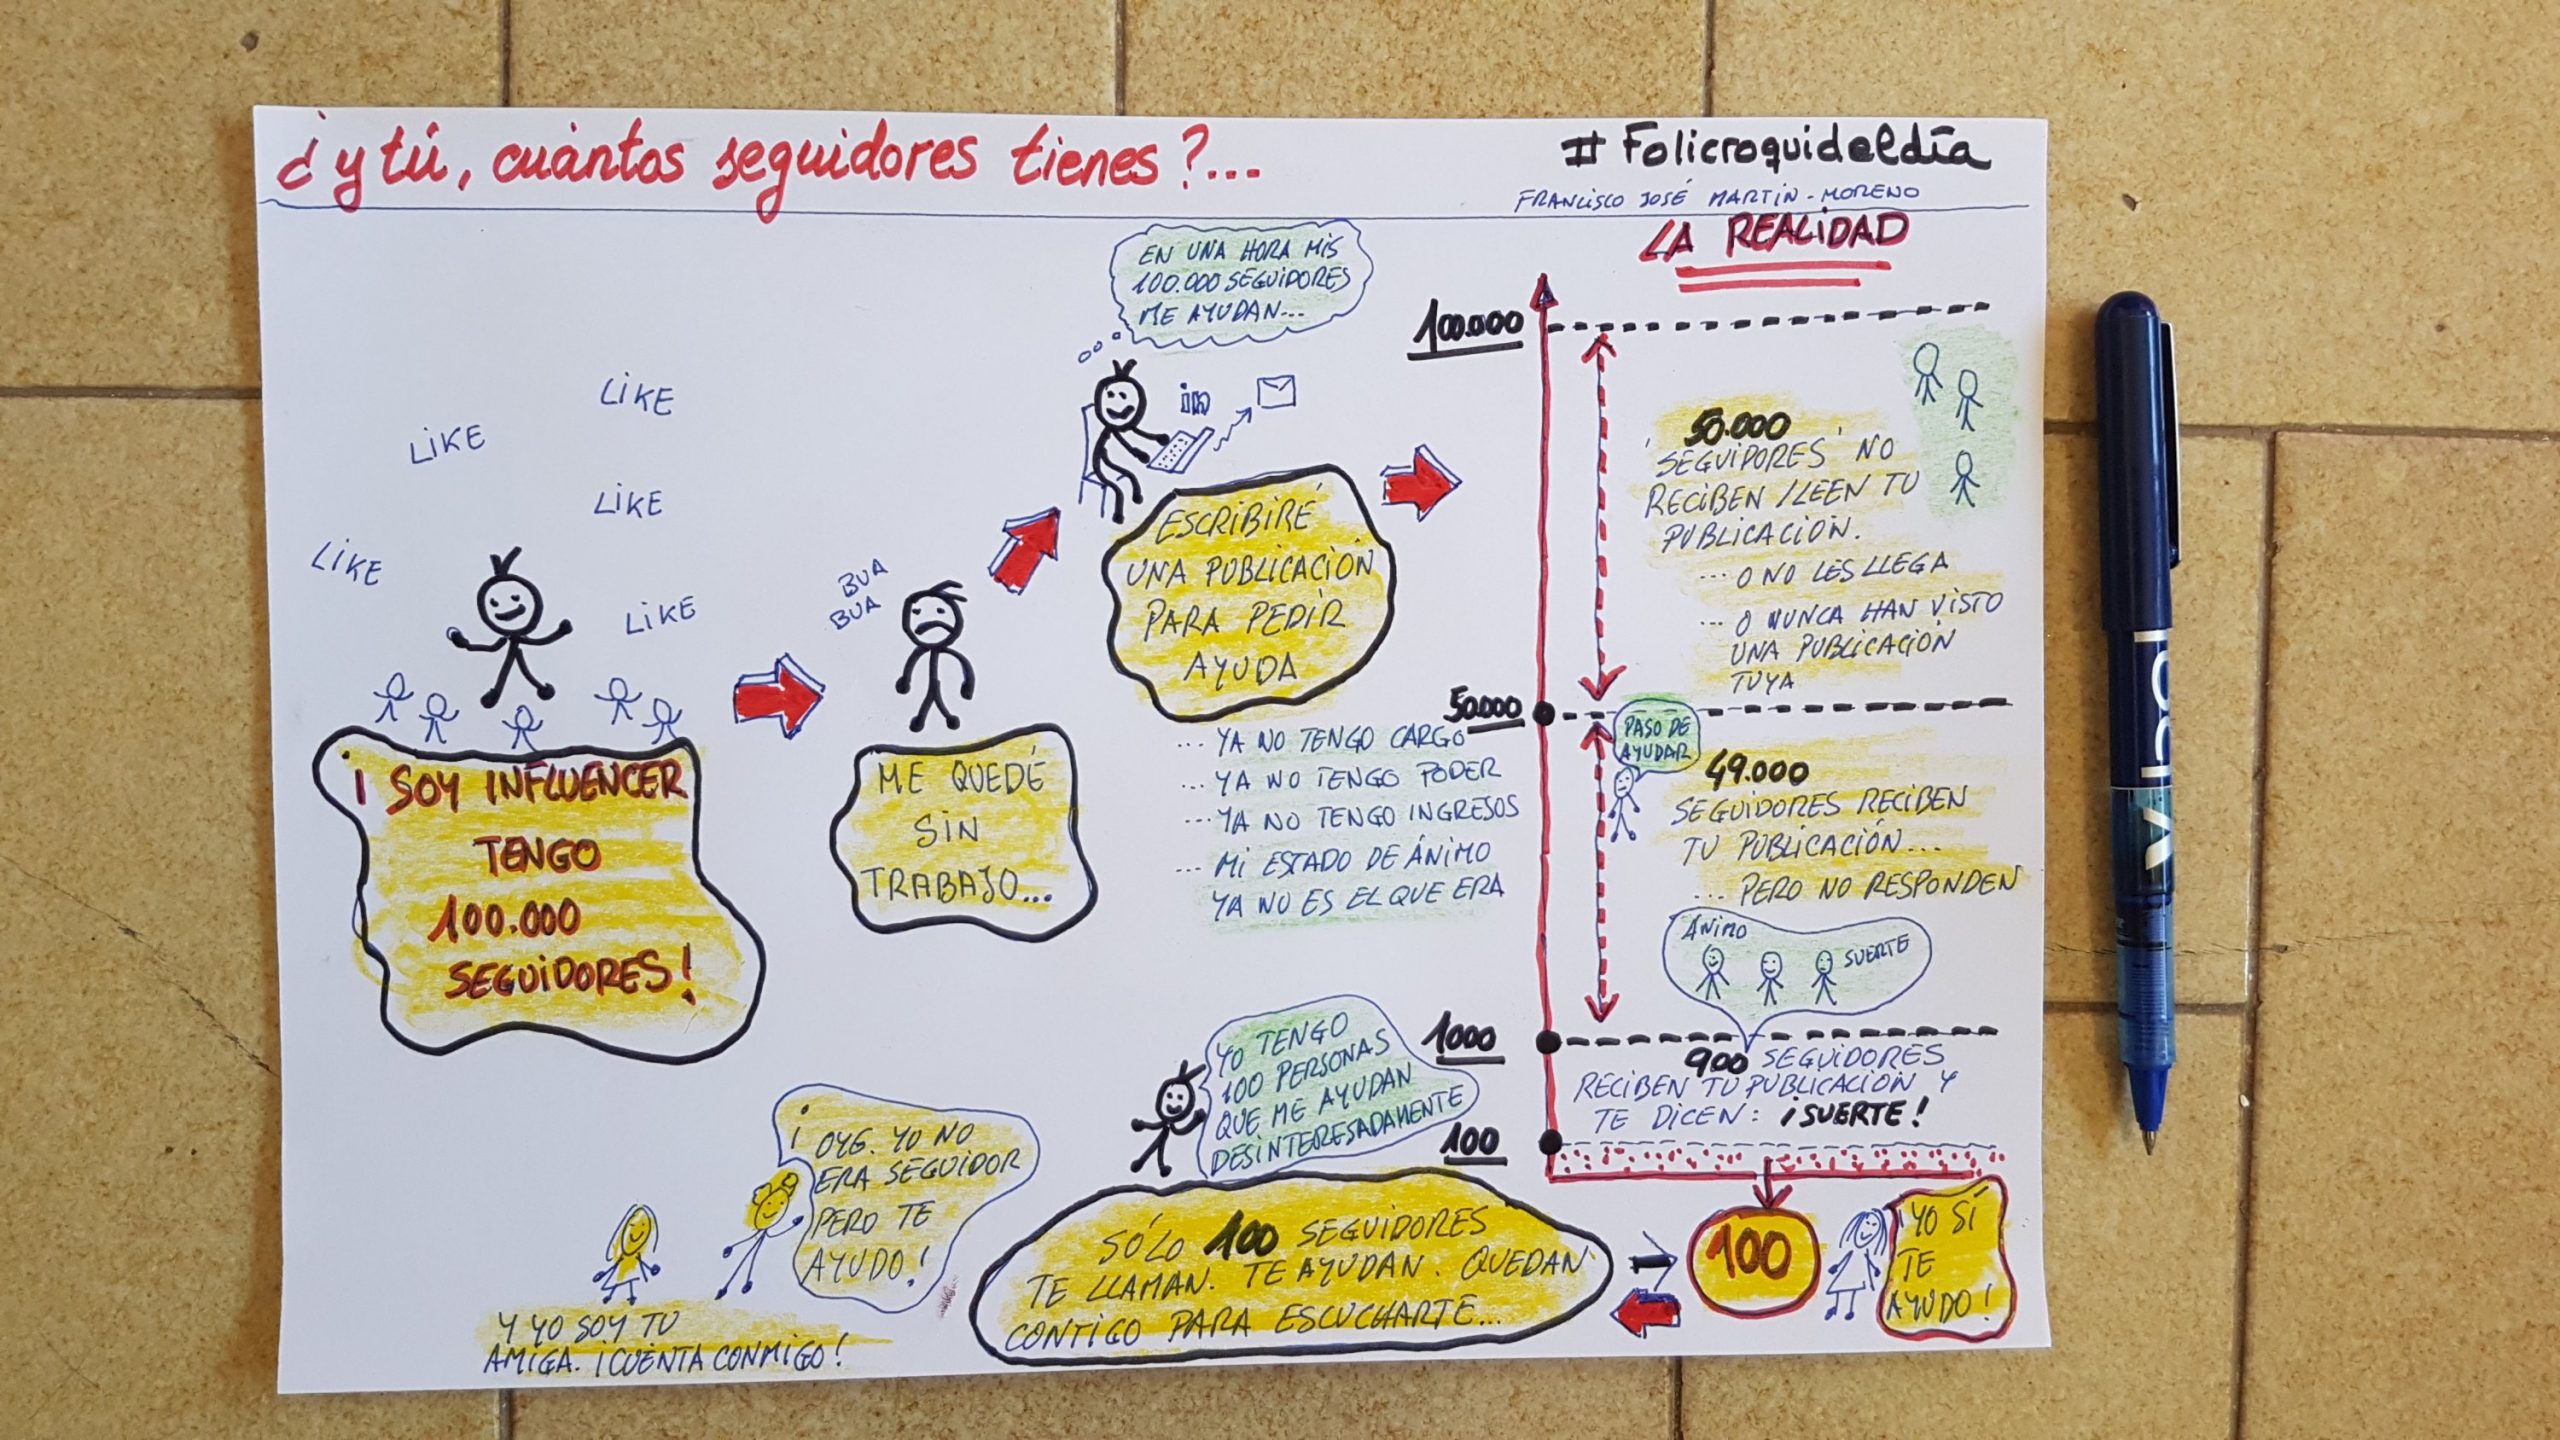 ¿y tú, cuántos seguidores tienes?...
#Folicroquideldía
FRANCISCO JOSÉ MARTÍN-MORENO
LIKE
LIKE
LIKE
LIKE
LIKE
¡SOY INFLUENCER
TENGO
100.000
SEGUIDORES!
BUA
BUA
ME QUEDÉ
SIN
TRABAJO...
EN UNA HORA MIS
100.000 SEGUIDORES
ME AYUDAN...
in
ESCRIBIRÉ
UNA PUBLICACIÓN
PARA PEDIR
AYUDA
... YA NO TENGO CARGO
... YA NO TENGO PODER
... YA NO TENGO INGRESOS
... MI ESTADO DE ÁNIMO
YA NO ES EL QUE ERA
LA REALIDAD
100.000
50.000
'SEGUIDORES' NO
RECIBEN / LEEN TU
PUBLICACIÓN.
... O NO LES LLEGA
... O NUNCA HAN VISTO
UNA PUBLICACIÓN
TUYA
50.000
PASO DE
AYUDAR
49.000
SEGUIDORES RECIBEN
TU PUBLICACIÓN...
... PERO NO RESPONDEN
ÁNIMO
SUERTE
1000
900 SEGUIDORES
RECIBEN TU PUBLICACIÓN Y
TE DICEN: ¡SUERTE!
100
100
¡YO SÍ
TE
AYUDO!
YO TENGO
100 PERSONAS
QUE ME AYUDAN
DESINTERESADAMENTE
SÓLO 100 SEGUIDORES
TE LLAMAN. TE AYUDAN. QUEDAN
CONTIGO PARA ESCUCHARTE...
¡OYE. YO NO
ERA SEGUIDOR
PERO TE
AYUDO!
Y YO SOY TU
AMIGA. ¡CUENTA CONMIGO!